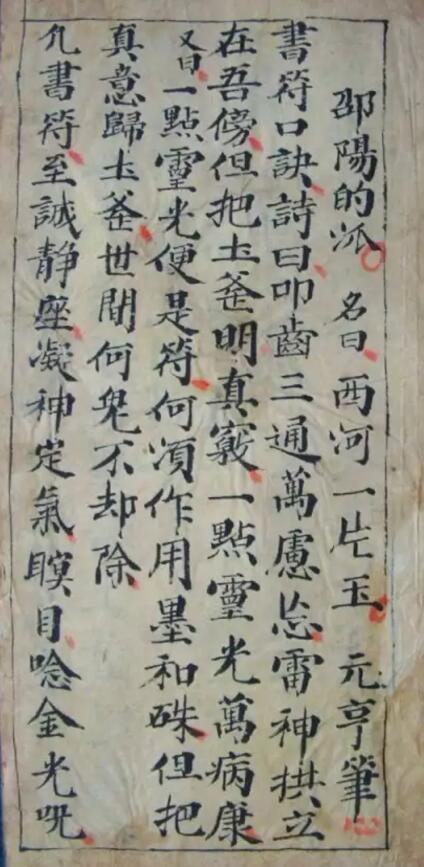 邵陽的派 名曰西河一片玉 元亨筆
書符口訣詩曰叩齒三通萬慮忘雷神拱立
在吾傍但把土釜明真竅一點靈光萬病康
又曰一點靈光便是符何須作用墨和硃但把
真意歸土釜世間何鬼不却除
凡書符至誠静座凝神定氣瞑目唸金光咒